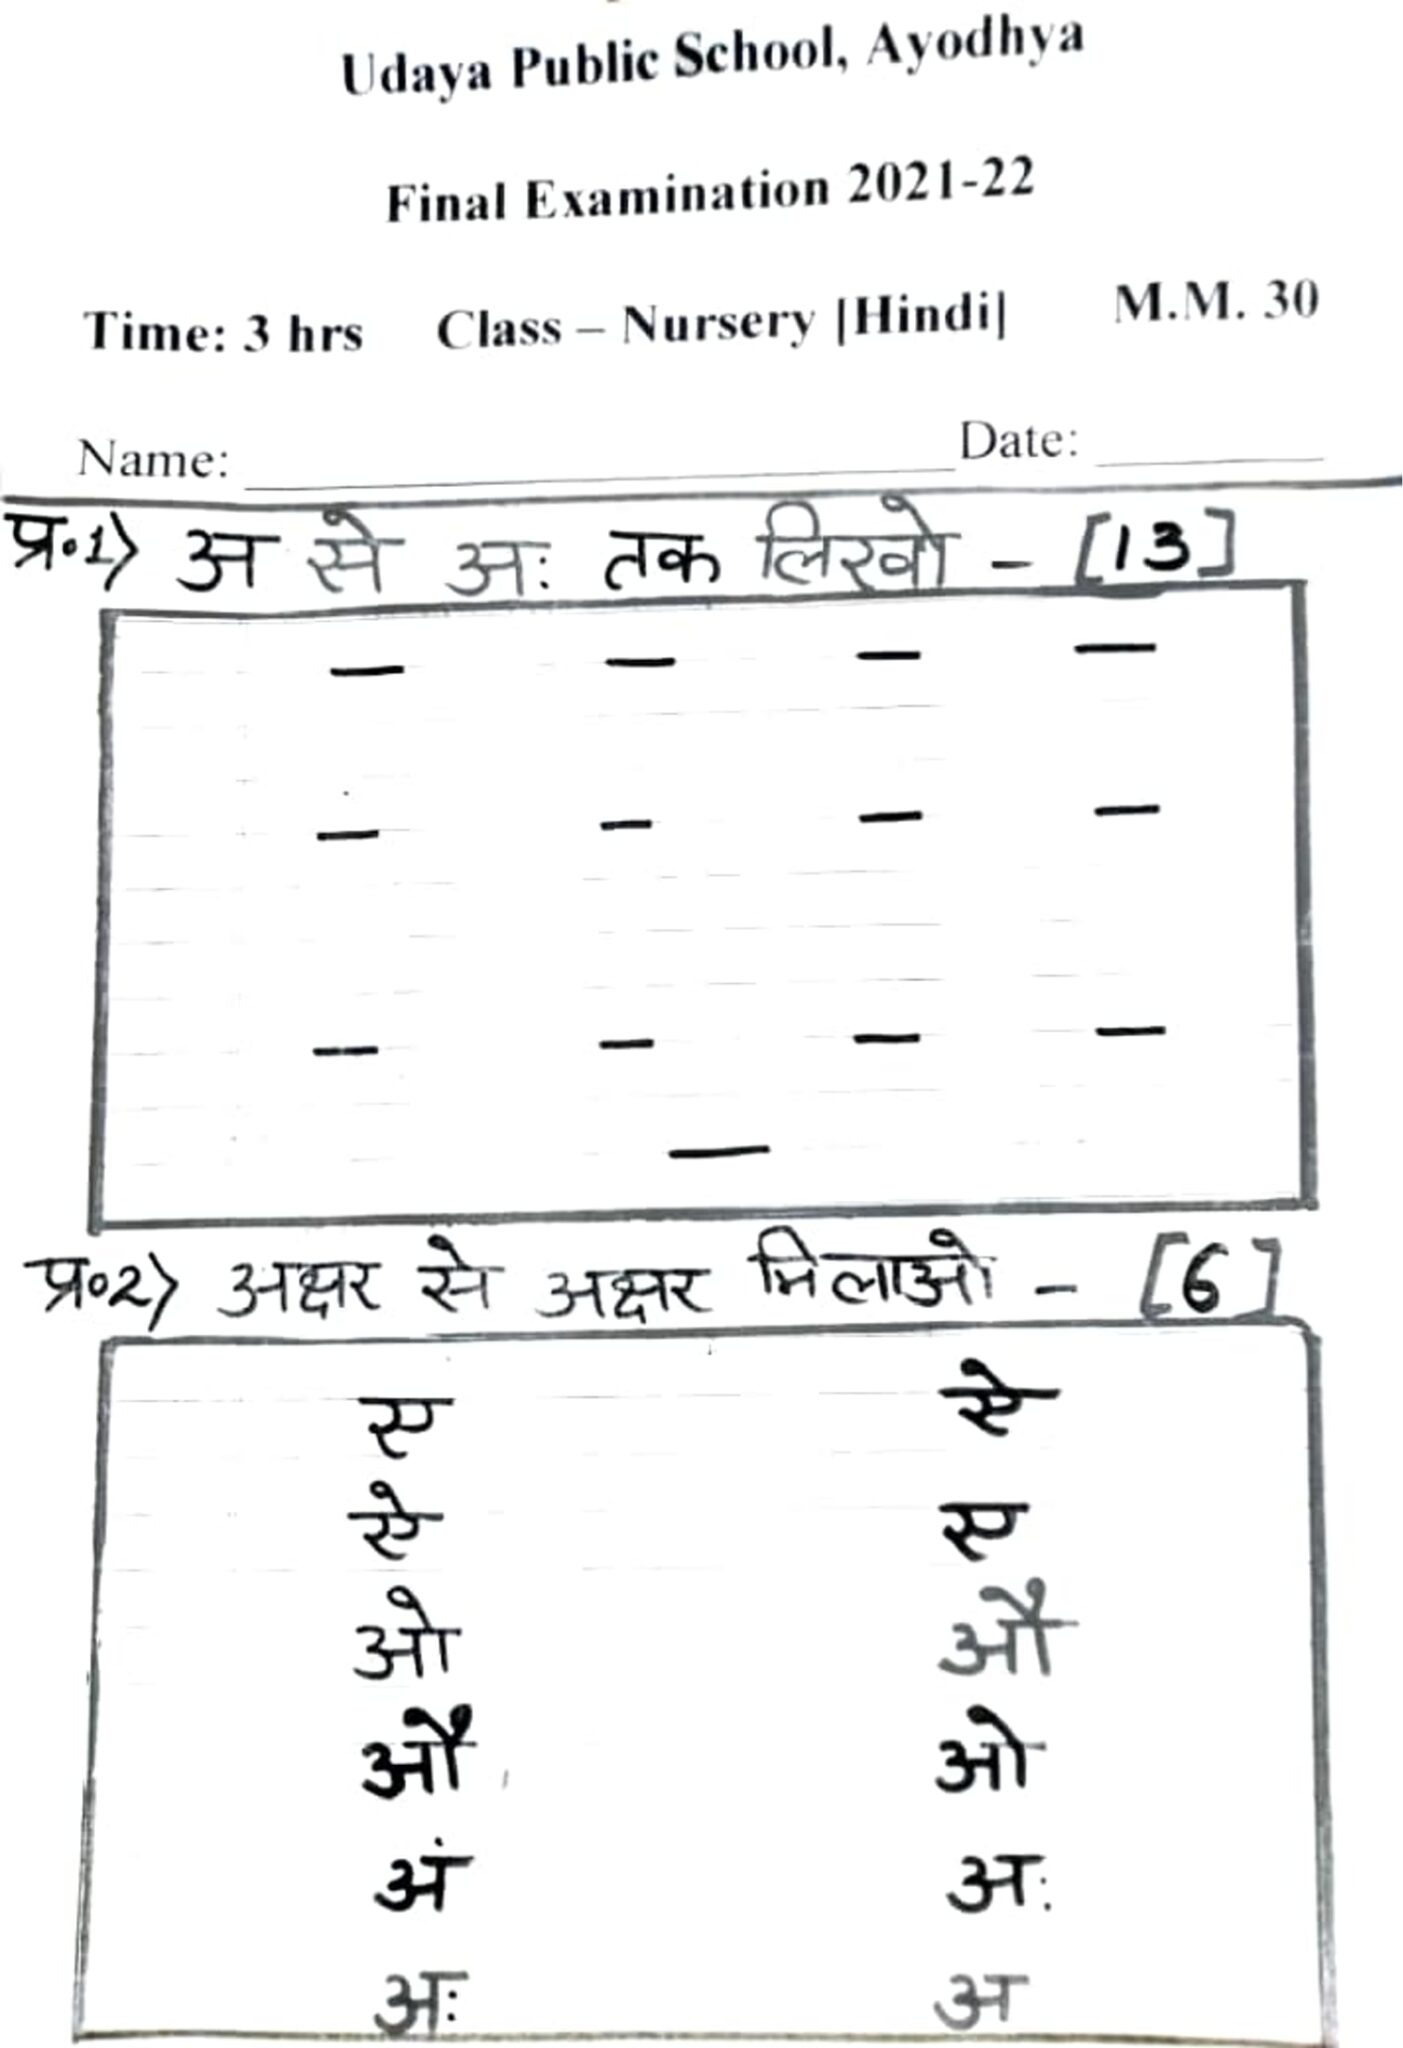 Udaya Public School, Ayodhya
Final Examination 2021-22
Time: 3 hrs Class – Nursery [Hindi] M.M. 30
Name: Date:
प्र०1) अ से अः तक लिखो - [13]
प्र०2) अक्षर से अक्षर मिलाओ - [6]
ए ऐ
ऐ ए
ओ औ
औ ओ
अं अः
अः अ